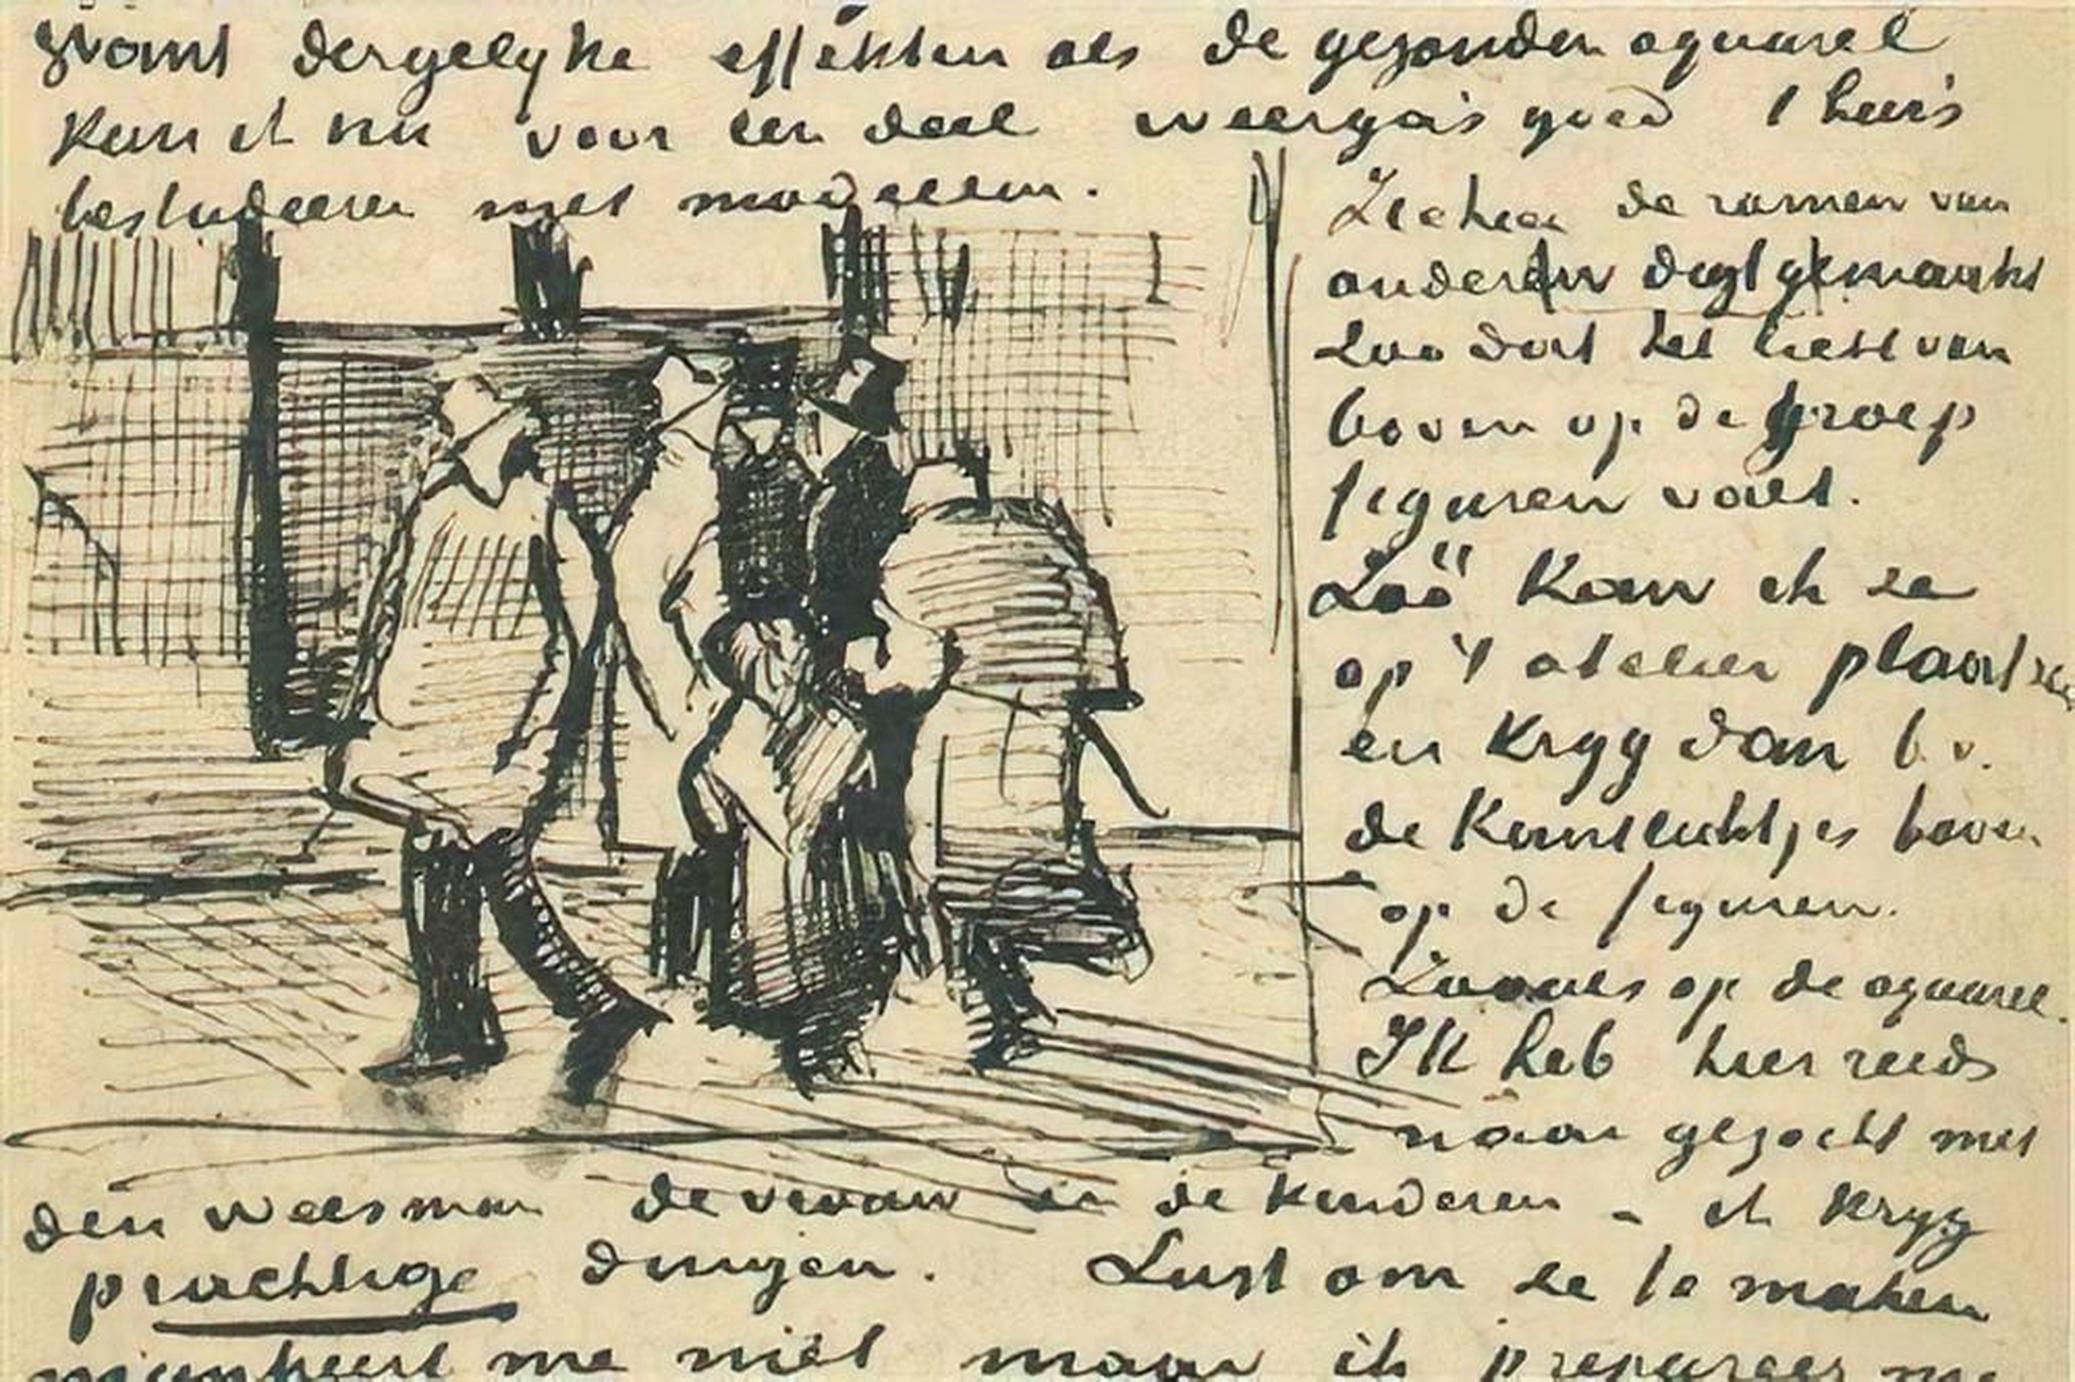 want dergelyke effekten als de gezonden aquarel
kan ik nu voor een deel weergaas goed t huis
bestudeeren met modellen.
Ziehier de ramen van
onderen digt gemaakt
zoo dat het licht van
boven op de groep
figuren valt.
Zoo kan ik ze
op 't atelier plaatsen
en kryg dan b.v.
de kantlichtjes boven
op de figuren.
Zooals op de aquarel.
Ik heb hier reeds
naar gezocht met
den weesman de vrouw en de kinderen - ik kryg
prachtige dingen. Lust om ze te maken
mankeert me niet maar ik prepareer me